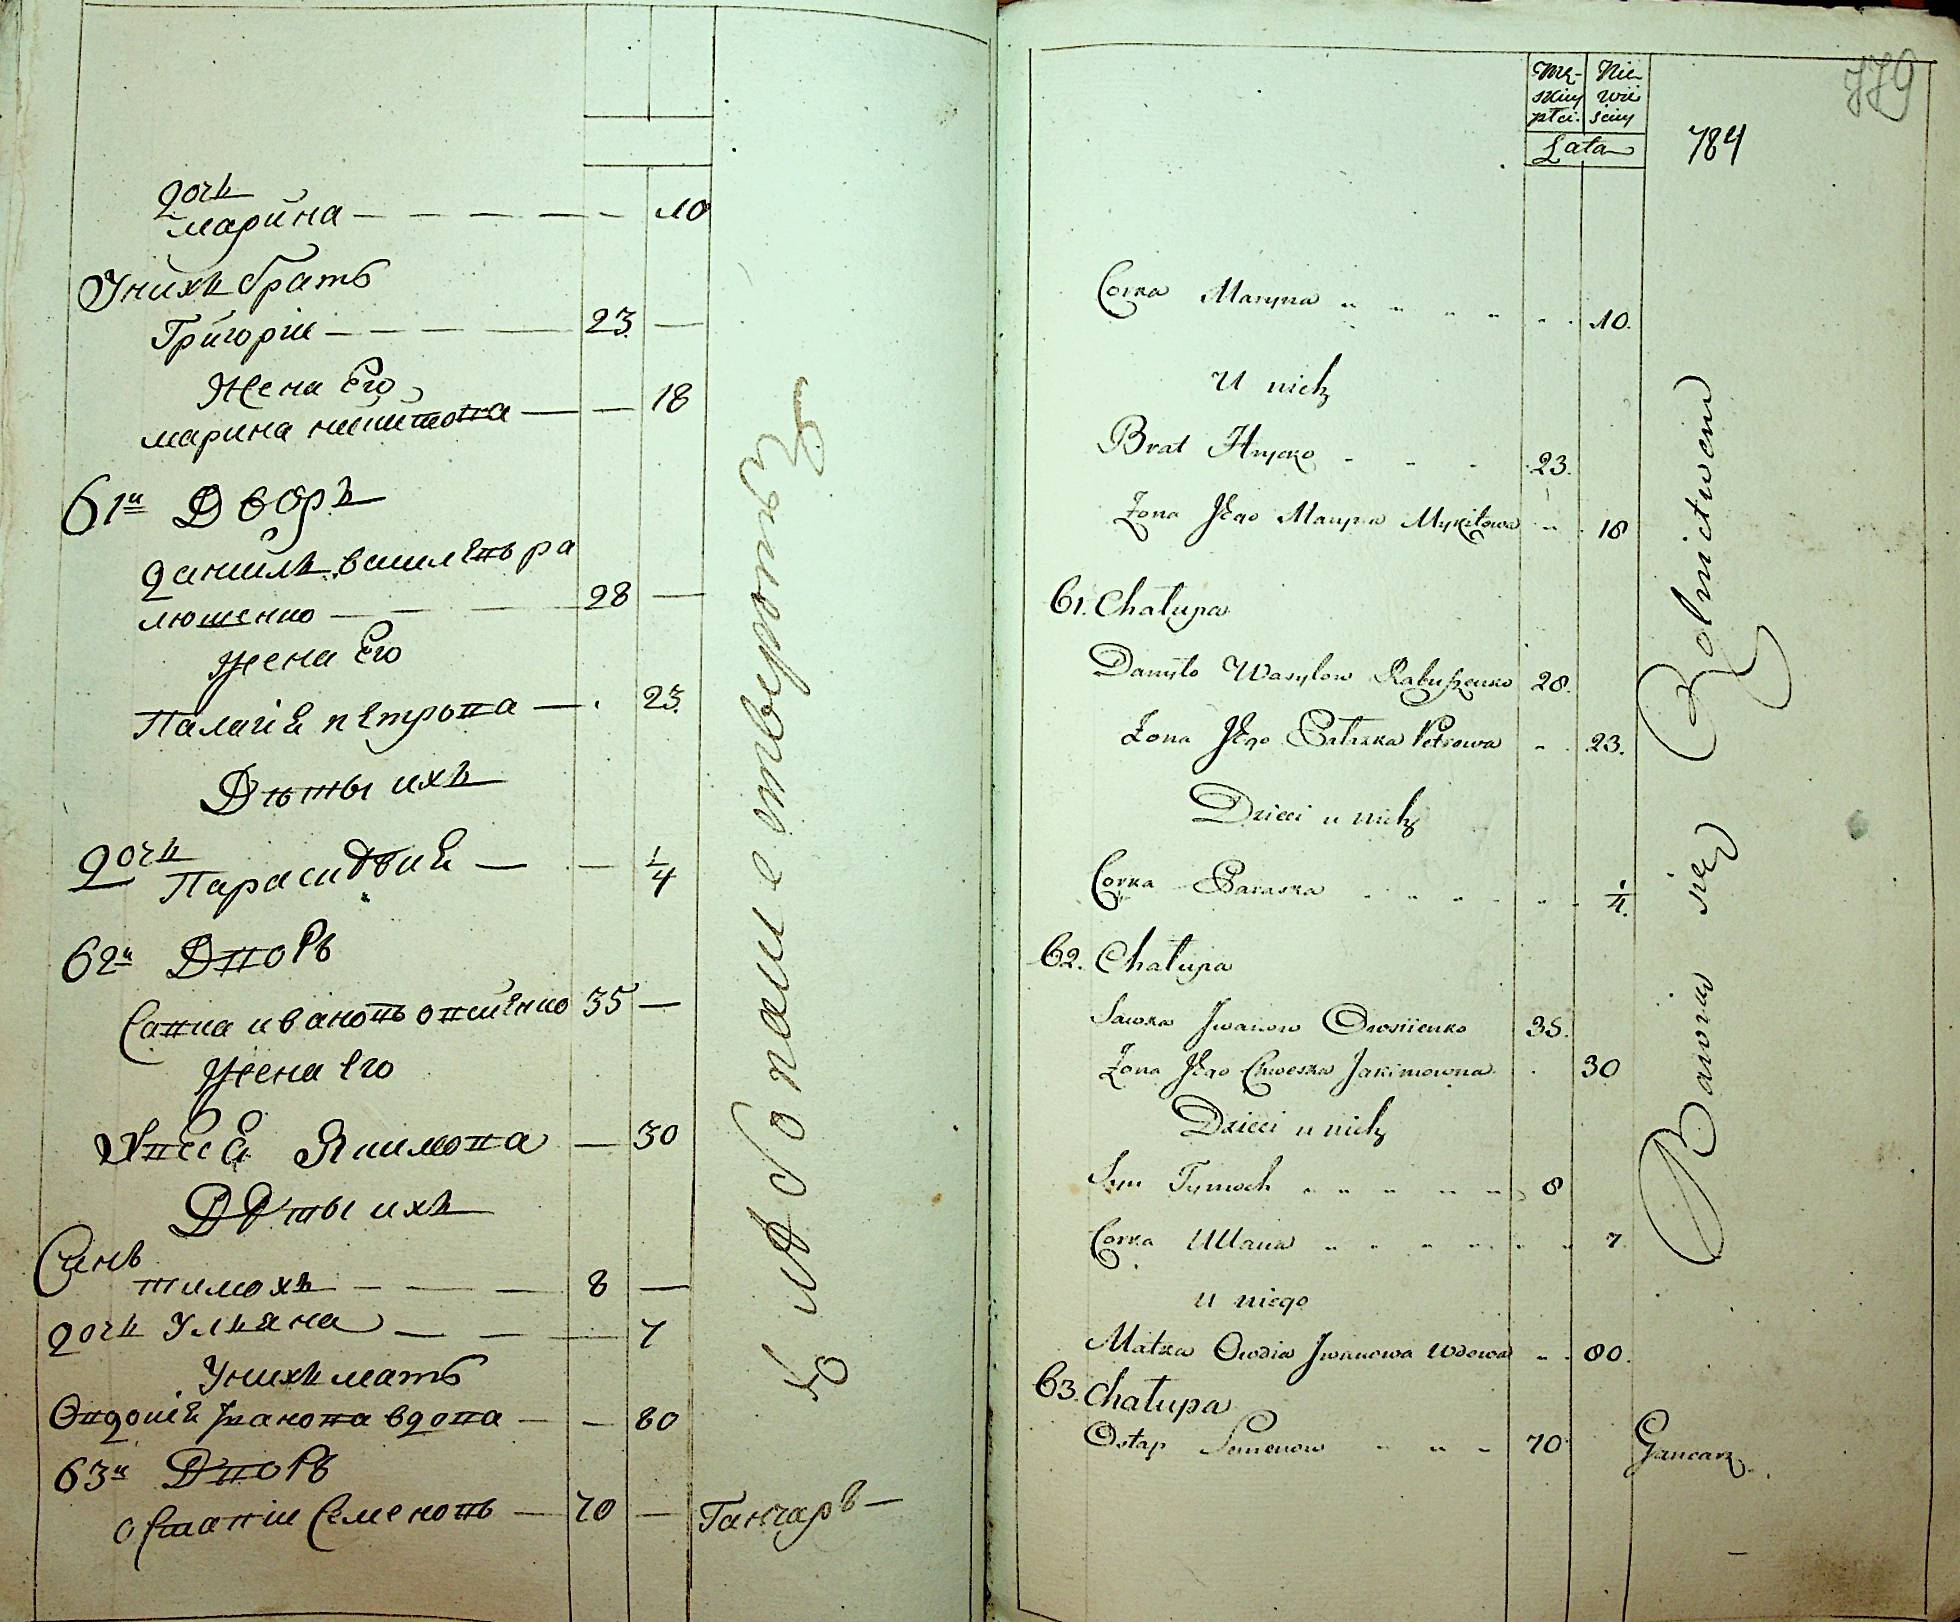 дочь
марина — — — — — 10
У нихъ братъ
Григорій — — — — 23 —
Жена Его
марина никитова — — 18
61й Дворъ
данило василевъ ра
люшенко — — — 28 —
Жена Его
Палагіа петрова — . 23.
Дѣты ихъ
дочь
Параскивиа — — 1/4
62й Дворъ
Савка ивановъ овсиенко 35 —
Жена Его
Хвеса Якимова — 30
Дѣты ихъ
Синъ
тимохъ — — — 8 —
дочь Уляна — — — 7
У нихъ мать
Овдошіа Іванова вдова — — 80
63й Дворъ
Остапій Семеновъ — 70 —
Ганчаръ —
779
784
Mę-
skiey
płci.
Nie
wie
sciey
Lata
Corka Maryna 10.
U nich
Brat Hrycko 23.
Żona Jego Maryna Mykitowa 18
61. Chałupa
Danyło Wasylow Rabuszenko 28.
Żona Jego Pałazka Petrowa 23.
Dzieci u nich
Corka Paraska 1/4.
62. Chałupa
Sawka Jwanow Owsiienko 35.
Żona Jego Chweska Jakimowna 30
Dzieci u nich
Syn Tymoch 8
Corka Ullana 7
U niego
Matka Owdia Jwanowa wdowa 80.
63. Chałupa
Ostap Semenow 70
Bawią się Rolnictwem
Gancarz